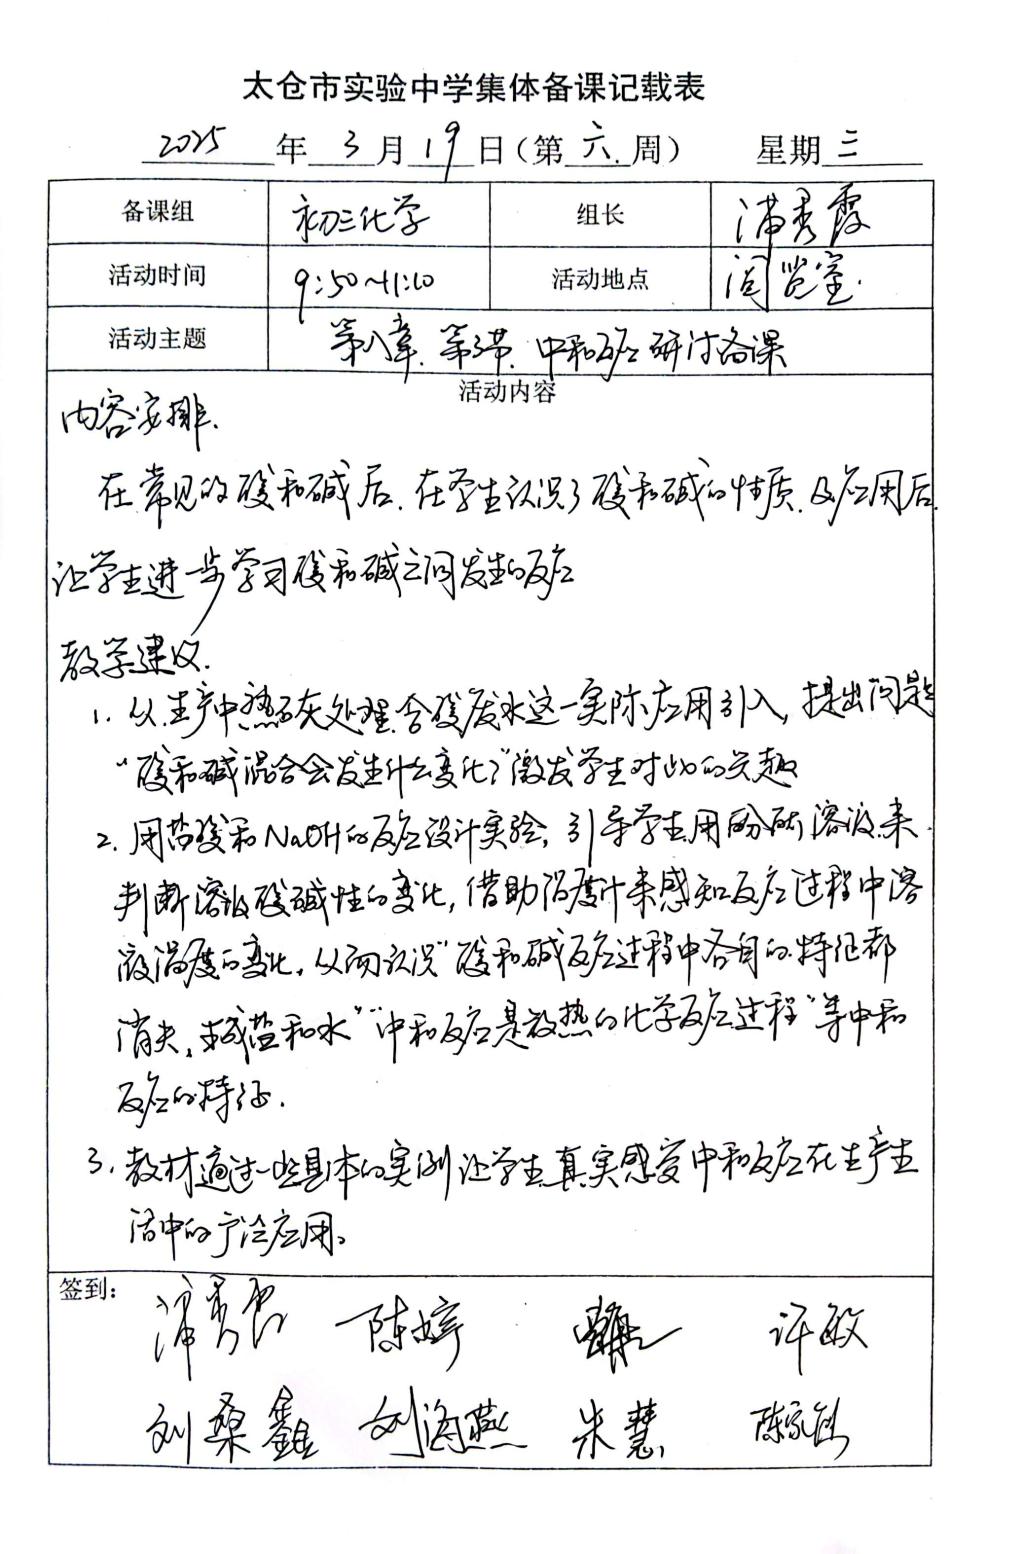 太仓市实验中学集体备课记载表
2025年3月19日(第六.周) 星期三
备课组 初三化学 组长 浦秀霞
活动时间 9:50~11:10 活动地点 阅览室.
活动主题 第八章.第3节.中和反应研讨备课
活动内容
内容安排.
在常见的酸和碱后.在学生认识了酸和碱的性质.及应用后.
让学生进一步学习酸和碱之间发生的反应
教学建议.
1. 从生产中熟石灰处理含酸废水这一实际应用引入,提出问题
“酸和碱混合会发生什么变化?”激发学生对此的兴趣
2. 用盐酸和NaOH的反应设计实验,引导学生用酚酞溶液来
判断溶液酸碱性的变化,借助温度计来感知反应过程中溶
液温度的变化,从而认识“酸和碱反应过程中各自的特征都
消失,生成盐和水”“中和反应是放热的化学反应过程”等中和
反应的特征.
3. 教材通过一些具体的实例让学生真实感受中和反应在生产生
活中的广泛应用。
签到:
浦秀霞 陈婷 许敏
刘桑鑫 刘海燕 朱慧 陈家